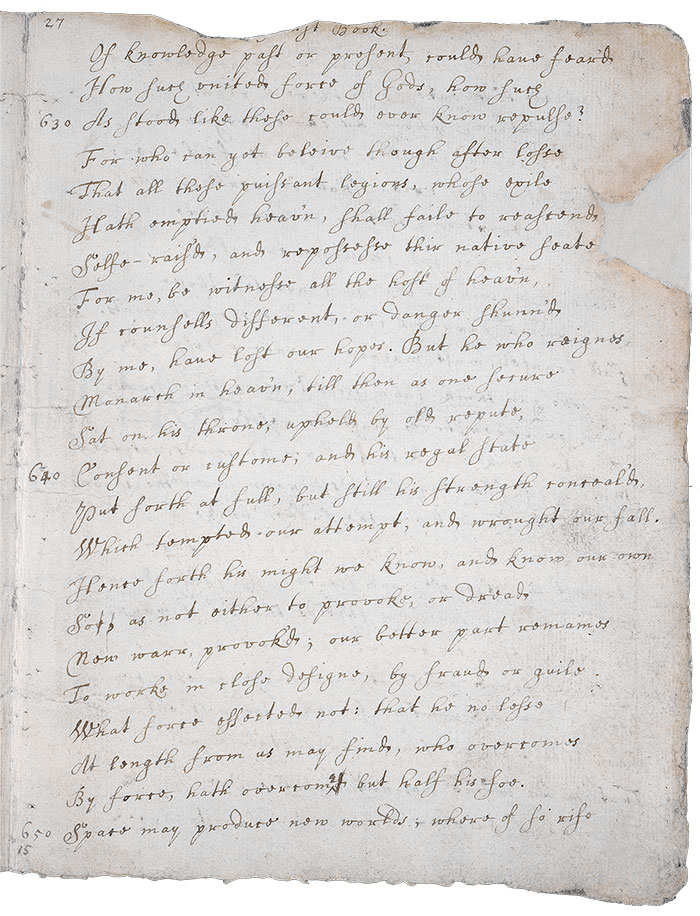 27
st Book.
Of knowledge past or present, could have fear'd
How such united force of Gods, how such
630 As stood like these could ever know repulse?
For who can yet beleive though after losse
That all these puissant legions, whose exile
Hath emptied heav'n, shall faile to reascend
Selfe-rais'd, and repossesse thir native seate
For me, be witnesse all the host of heav'n,
If counsells different, or danger shunn'd
By me, have lost our hopes. But he who reignes
Monarch in heav'n, till then as one secure
Sat on his throne, upheld by old repute,
640 Consent or custome, and his regal state
Put forth at full, but still his strength conceal'd,
Which tempted our attempt, and wrought our fall.
Hence forth his might we know, and know our own
So as not either to provoke, or dread
New warr, provok'd; our better part remaines
To worke in close designe, by fraud or guile
What force effected not: that he no lesse
At length from us may find, who overcomes
By force, hath overcome but half his foe.
650 Space may produce new worlds; whereof so rife
15